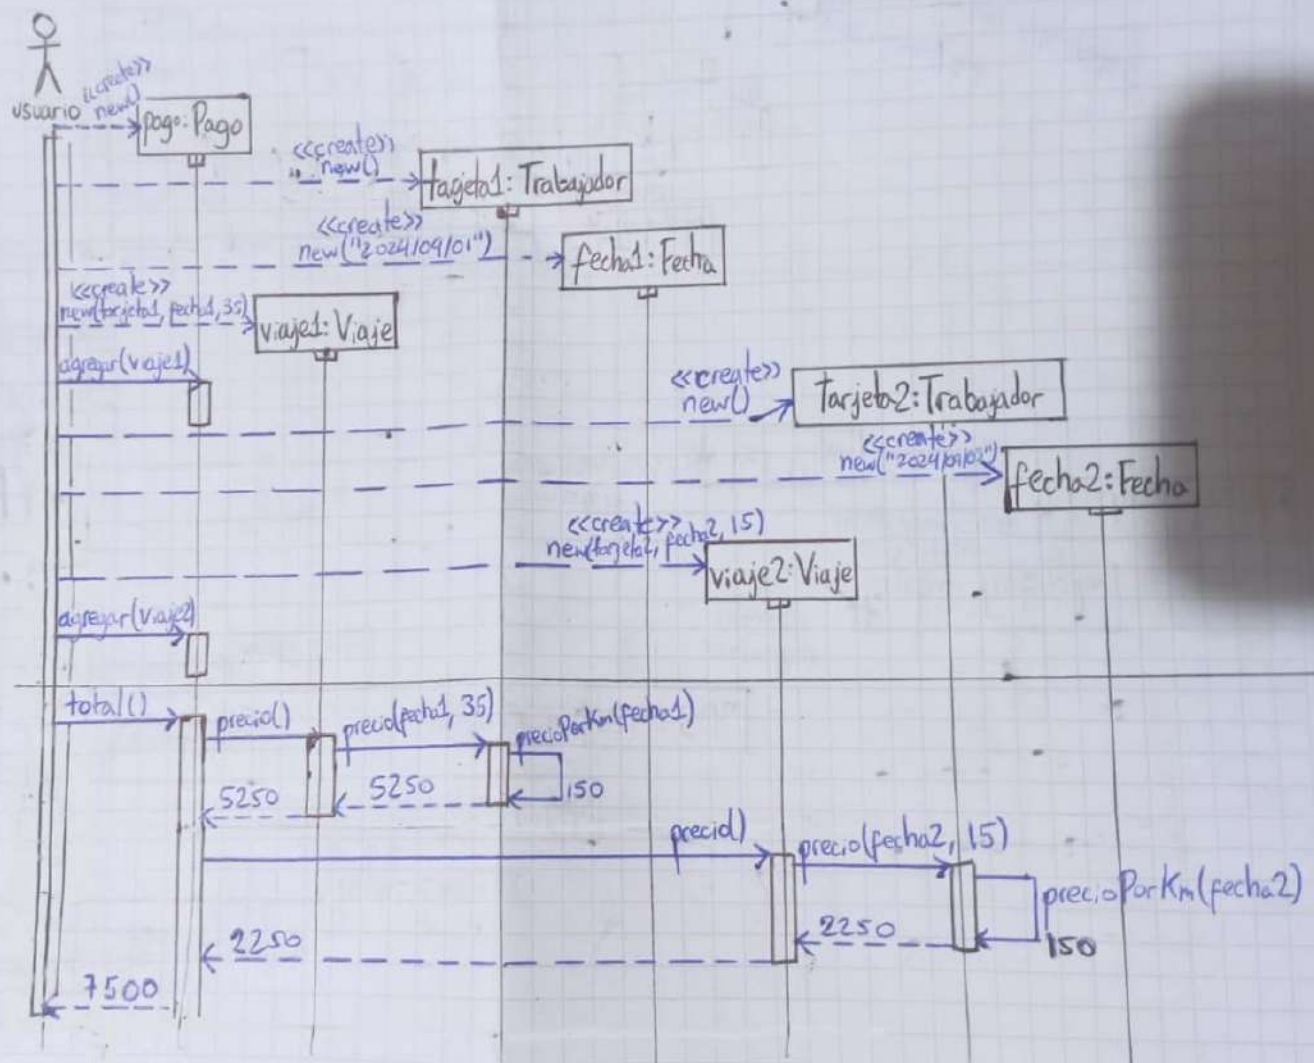 usuario
<<create>>
new()
pago: Pago
<<create>>
new()
tarjeta1: Trabajador
<<create>>
new("2024/09/01")
fecha1: Fecha
<<create>>
new(tarjeta1, fecha1, 35)
viaje1: Viaje
agregar(viaje1)
<<create>>
new()
tarjeta2: Trabajador
<<create>>
new("2024/09/
fecha2: Fecha
<<create>>
new(tarjeta2, fecha2, 15)
viaje2: Viaje
agregar(viaje2)
total()
precio()
precio(fecha1, 35)
precioPorKm(fecha1)
150
5250
5250
precio()
precio(fecha2, 15)
precioPorKm(fecha2)
150
2250
2250
7500